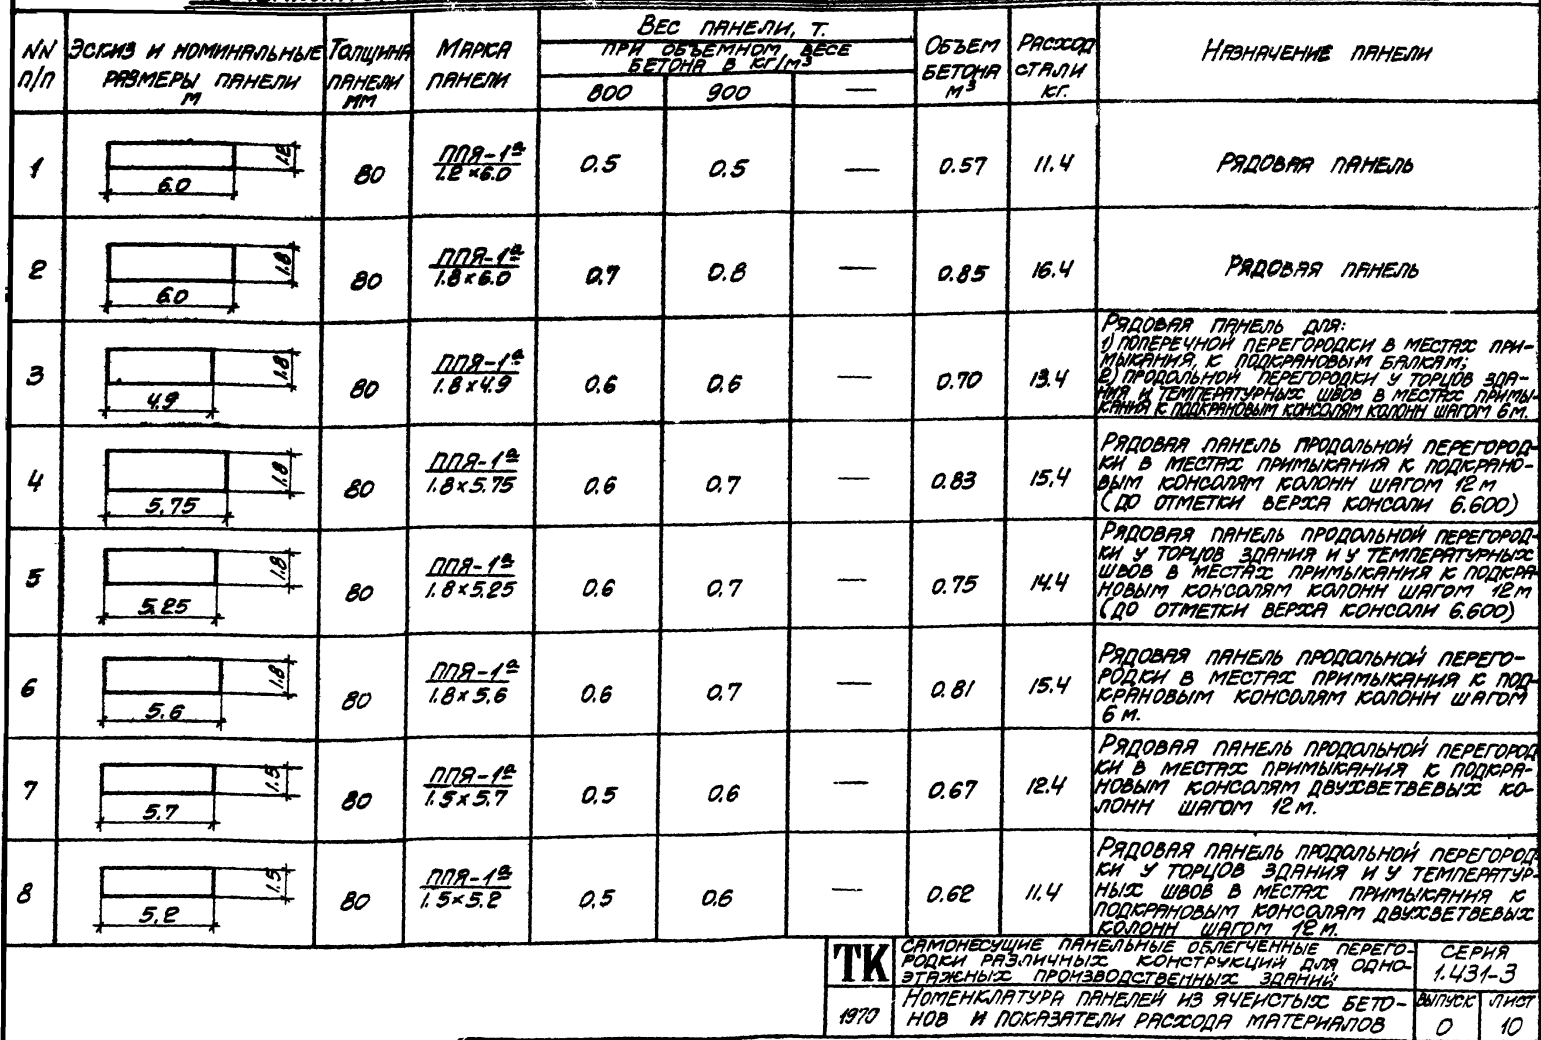 NN п/п
Эскиз и номинальные размеры панели м
Толщина панели мм
Марка панели
Вес панели, т.
при объемном весе бетона в кг/м³
800
900
—
Объем бетона м³
Расход стали кг.
Назначение панели
1
1.2
6.0
80
ППЯ-1ª
1.2×6.0
0.5
0.5
—
0.57
11.4
Рядовая панель
2
1.8
6.0
80
ППЯ-1ª
1.8×6.0
0.7
0.8
—
0.85
16.4
Рядовая панель
3
1.8
4.9
80
ППЯ-1ª
1.8×4.9
0.6
0.6
—
0.70
13.4
Рядовая панель для:
1) поперечной перегородки в местах при-
мыкания к подкрановым балкам;
2) продольной перегородки у торцов зда-
ния и температурных швов в местах примы-
кания к подкрановым консолям колонн шагом 6 м.
4
1.8
5,75
80
ППЯ-1ª
1.8×5.75
0.6
0.7
—
0.83
15.4
Рядовая панель продольной перегород-
ки в местах примыкания к подкрано-
вым консолям колонн шагом 12 м
(до отметки верха консоли 6.600)
5
1.8
5.25
80
ППЯ-1ª
1.8×5.25
0.6
0.7
—
0.75
14.4
Рядовая панель продольной перегород-
ки у торцов здания и у температурных
швов в местах примыкания к подкра-
новым консолям колонн шагом 12 м
(до отметки верха консоли 6.600)
6
1.8
5.6
80
ППЯ-1ª
1.8×5.6
0.6
0.7
—
0.81
15.4
Рядовая панель продольной перего-
родки в местах примыкания к под-
крановым консолям колонн шагом
6 м.
7
1.5
5.7
80
ППЯ-1ª
1.5×5.7
0.5
0.6
—
0.67
12.4
Рядовая панель продольной перегород
ки в местах примыкания к подкра-
новым консолям двухветвевых ко-
лонн шагом 12 м.
8
1.5
5.2
80
ППЯ-1ª
1.5×5.2
0.5
0.6
—
0.62
11.4
Рядовая панель продольной перегород
ки у торцов здания и у температур-
ных швов в местах примыкания к
подкрановым консолям двухветвевых
колонн шагом 12 м.
ТК
Самонесущие панельные облегченные перего-
родки различных конструкций для одно-
этажных производственных зданий
Серия
1.431-3
1970
Номенклатура панелей из ячеистых бето-
нов и показатели расхода материалов
Выпуск
0
Лист
10